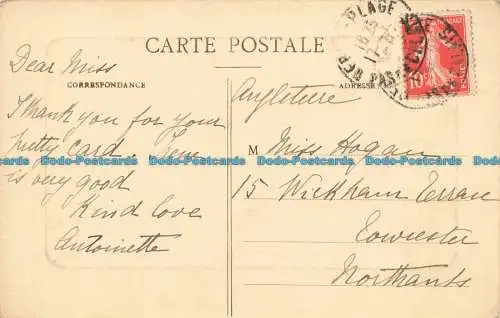 CARTE POSTALE
CORRESPONDANCE
Dear Miss
I thank you for your
pretty card.
is very good
Kind love
Antoinette
ADRESSE
Angleterre
M Miss Hogan
15 Wickham Terrase
Towcester
Northants
PLAGE
10
Dodo-Postcards Dodo-Postcards Dodo-Postcards Dodo-Postcards Dodo-Postcards